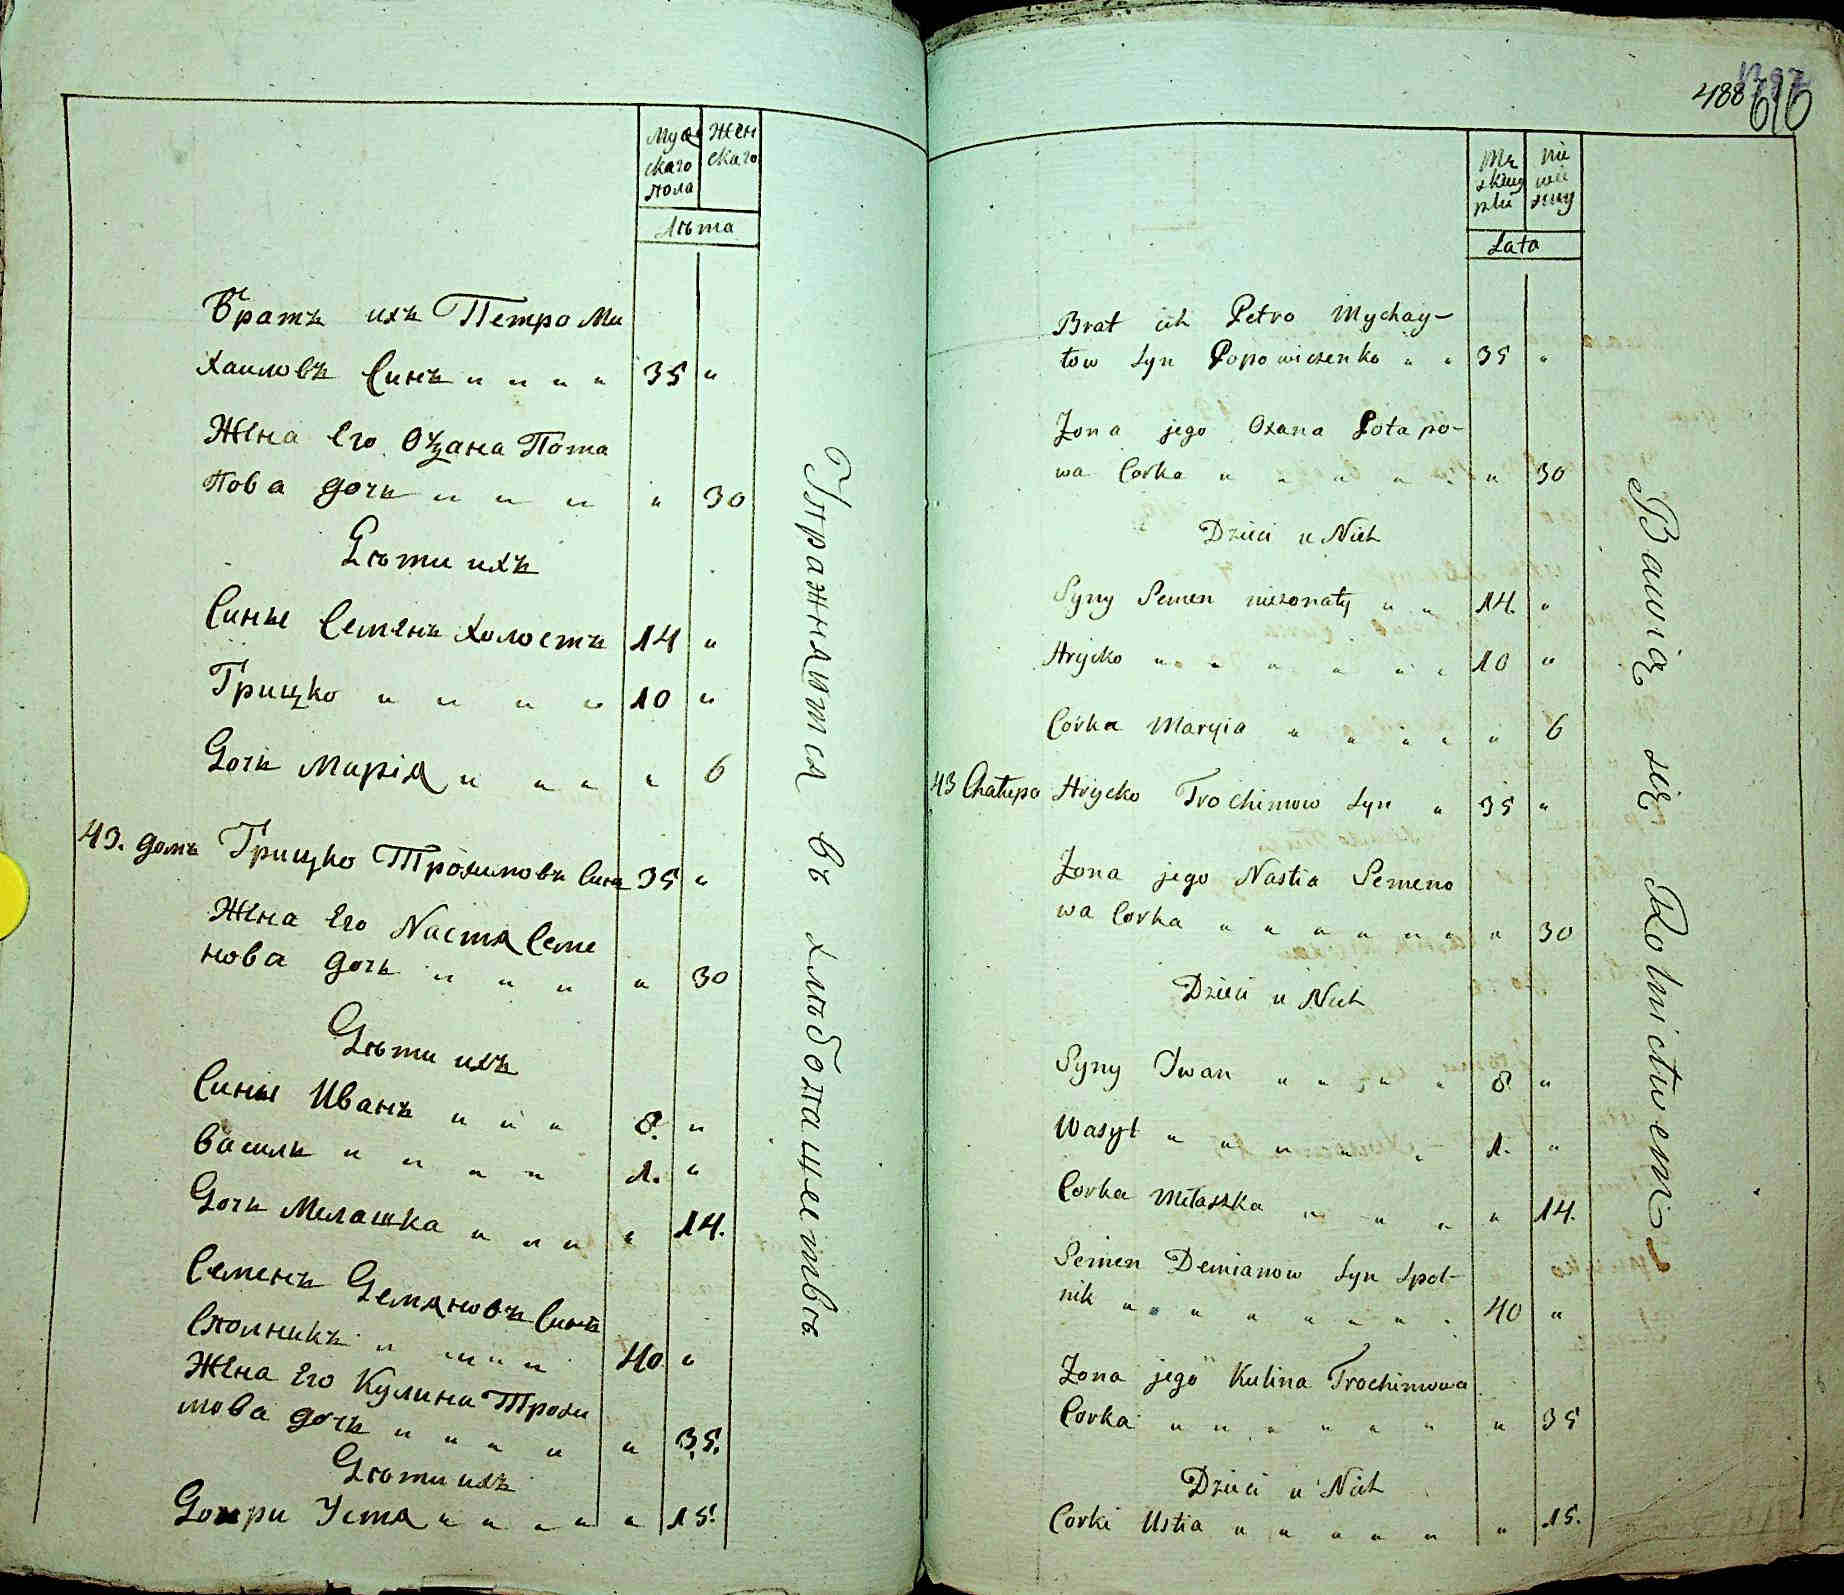 Муж Жен
скаго скаго
пола
Лѣта
Братъ ихъ Петро Ми
хаиловъ Синъ " " " " 35 "
Жена Его Оѯана Пота
пова дочь " " " " 30
Дѣти ихъ
Сины Семенъ холостъ 14 "
Грицко " " " " 10 "
Дочь Марія " " " " 6
43. домъ Грицко Трохимовъ Синъ 35 "
Жена Его Настя Семе
нова дочь " " " " 30
Дѣти ихъ
Сины Иванъ " " " 8. "
Василь " " " " 1. "
Дочь Мелашка " " " " 14.
Семенъ Демяновъ Синъ
Сполникъ " " " " 40 "
Жена Его Кулина Трохи
мова дочь " " " " " 35.
Дѣти ихъ
Дочери Устя " " " " " 15.
Упражняются въ хлѣбопашествѣ
488 616
Mę nie
skiey wie
płci sciey
Lata
Brat ich Petro Mychay-
łow Syn Popowiczenko " " 35 "
Żona jego Oxana Potapo-
wa Corka " " " " " " 30
Dzieci u Nich
Syny Semen nieżonaty " " 14. "
Hrycko " " " " " " 10 "
Corka Maryia " " " " " 6
43 Chałupa Hrycko Trochimow Syn " 35 "
Żona jego Nastia Semeno
wa Corka " " " " " " " 30
Dzieci u Nich
Syny Iwan " " " " " 8 "
Wasyl " " " " " " 1. "
Corka Mełaszka " " " " 14.
Semen Demianow Syn Spol-
nik " " " " " " " " 40 "
Żona jego Kulina Trochimowa
Corka " " " " " " " " 35
Dzieci u Nich
Corki Ustia " " " " " " 15.
Bawią się Rolnictwem